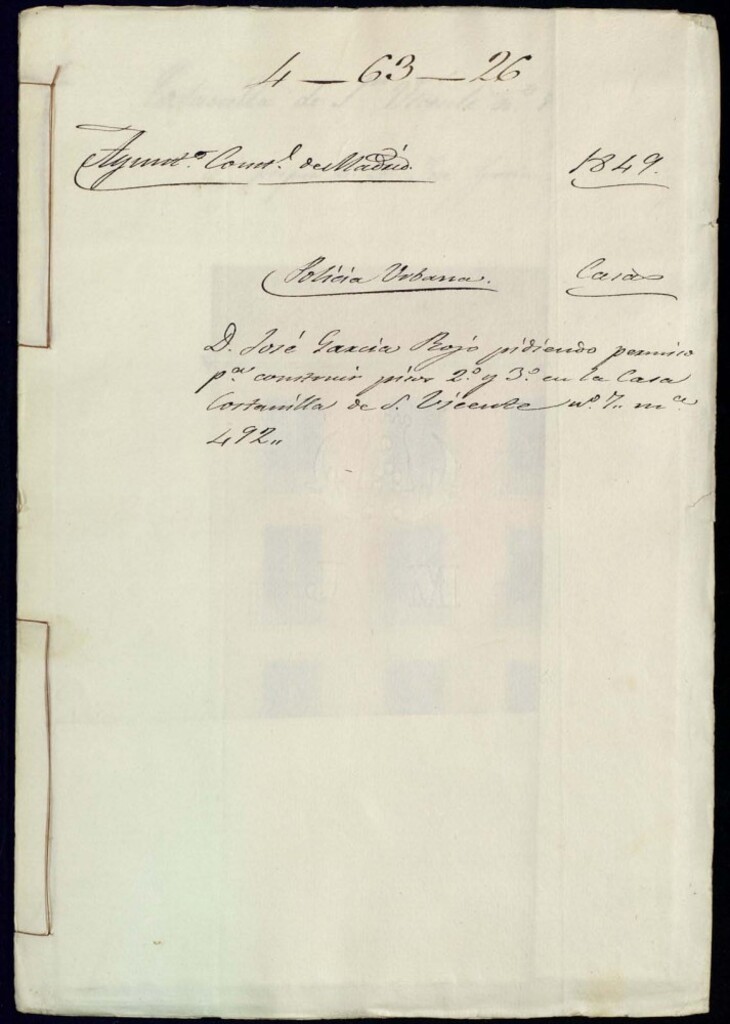 4 — 63 — 26
Ayunt.º Const.l de Madrid. 1849.
Policia Urbana. Casas
D. José Garcia Rojo pidiendo permiso
p.a construir pisos 2.º y 3.º en la Casa
Costanilla de S. Vicente n.º 7.. m.a
492..